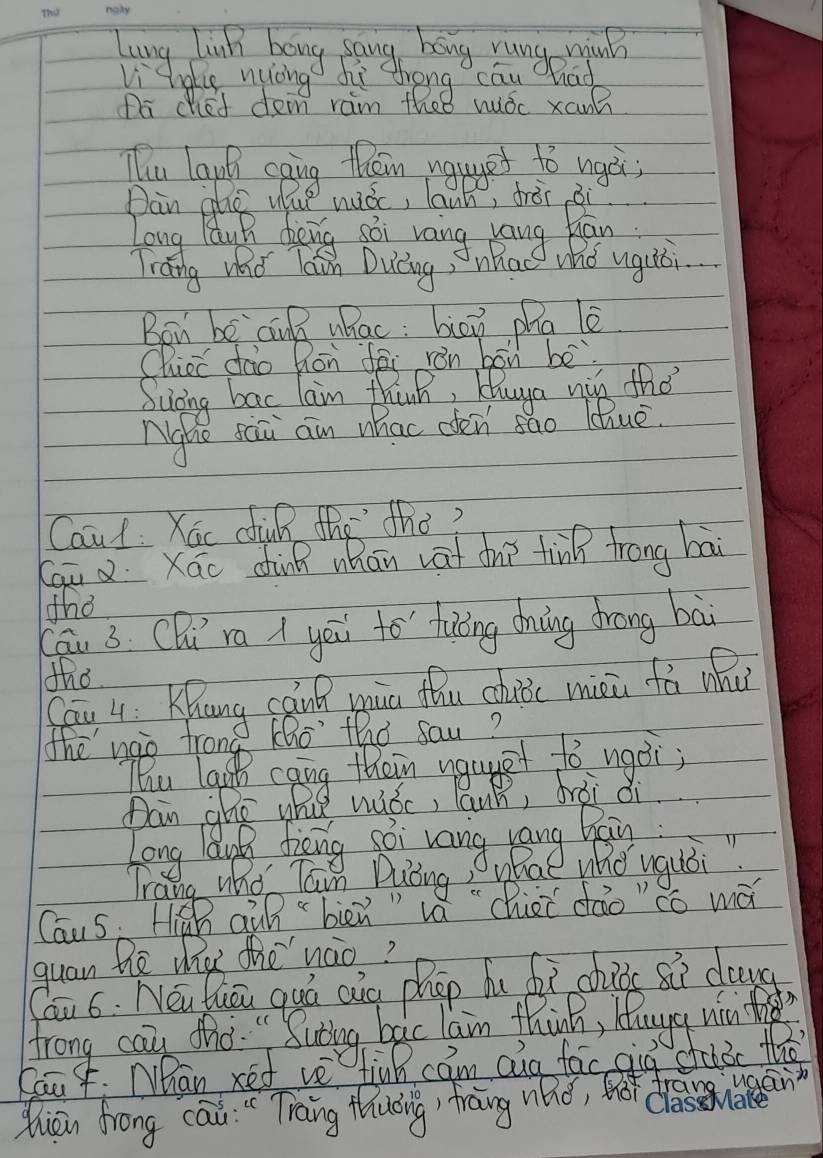 Thứ ngày
Lung linh bóng sáng bỗng rung mình
Vì nghe nương tử trong câu hát
Đã chết đêm rằm theo nước xanh.
Thu lạnh càng thêm nguyệt tỏ ngời;
Đàn ghê như nước, lạnh, trời ơi...
Long lanh tiếng sỏi vang vang hận:
Trăng nhớ Tầm Dương, nhạc nhớ người...
Bốn bề ánh nhạc: biển pha lê.
Chiếc đảo hồn tôi rợn bốn bề.
Sương bạc làm thinh, khuya nín thở
Nghe sầu âm nhạc đến sao Khuê.
Câu 1: Xác định thể thơ?
Câu 2: Xác định nhân vật trữ tình trong bài
thơ
Câu 3: Chỉ ra 1 yếu tố tượng trưng trong bài
thơ.
Câu 4: Khung cảnh mùa thu được miêu tả như
thế nào trong khổ thơ sau?
Thu lạnh càng thêm nguyệt tỏ ngời;
Đàn ghê như nước, lạnh, trời ơi...
Long lanh tiếng sỏi vang vang hận:
Trăng nhớ Tầm Dương, nhạc nhớ người".
Câu 5: Hình ảnh "biển" và "chiếc đảo" có mối
quan hệ như thế nào?
Câu 6: Nêu hiệu quả của phép tu từ được sử dụng
trong câu thơ: "Sương bạc làm thinh, khuya nín thở"
Câu 7: Nhận xét về tình cảm của tác giả được thể
hiện trong câu: "Trăng thương, trăng nhớ, hỡi trăng ngần"
ClassMate